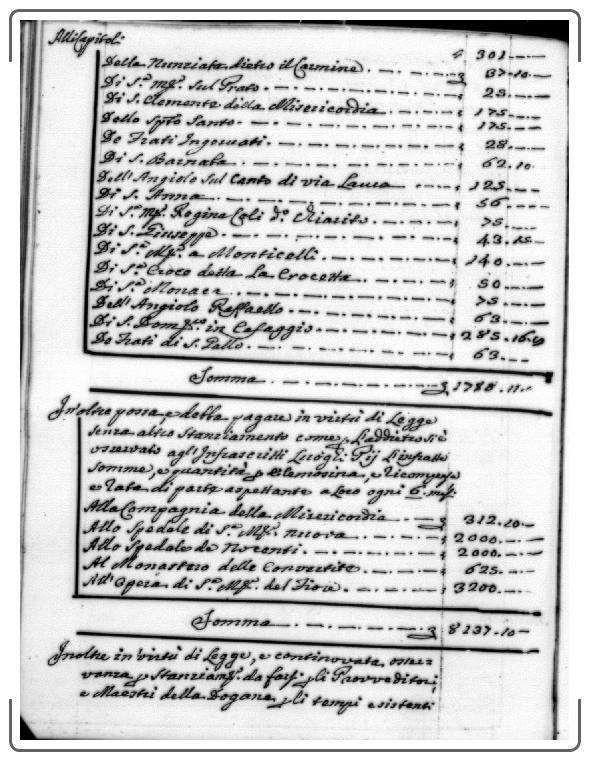 Alli Capitoli
Della Nunziata dietro il Carmine 301
Di S.ª Mª. sul Prato 37.10
Di S. Clemente della Misericordia 25
Dello Spto Santo 175
De Frati Ingesuati 175
Di S. Barnaba 28
Dell'Angiolo sul Canto di via Laura 62.10
Di S. Anna 125
Di S.ª Mª. Regina Celi dº Chiarito 56
Di S. Giuseppe 75
Di S.ª Mª. a Monticelli 43.15
Di S.ª Croce detta La Crocetta 140
Di S.ª Monaca 50
Dell'Angiolo Raffaello 75
Di S. Dom.co in Cafaggio 63
De Frati di S. Gallo 285.16.9
63
Somma 1788.11
In'oltre possa, e debba pagare in virtù di Legge
senza altro Stanziamento come p. l'addietro si è
osservato agl'Infrascritti Luoghi Pij l'infratte
somme, e quantità p. elemosina, e ricompensa
e rata di parte aspettante a Loro ogni 6. mesi
Alla Compagnia della Misericordia 312.10
Allo Spedale di S.ª Mª. Nuova 2000
Allo Spedale de Nocenti 2000
Al Monastero delle Convertite 625
All'Opera di S.ª Mª. del Fiore 3200
Somma 8137.10
Inoltre in virtù di Legge, e continovata osser-
vanza p. Stanziam.ti da farsi p. li Provveditori,
e Maestri della Dogana p. li tempi esistenti